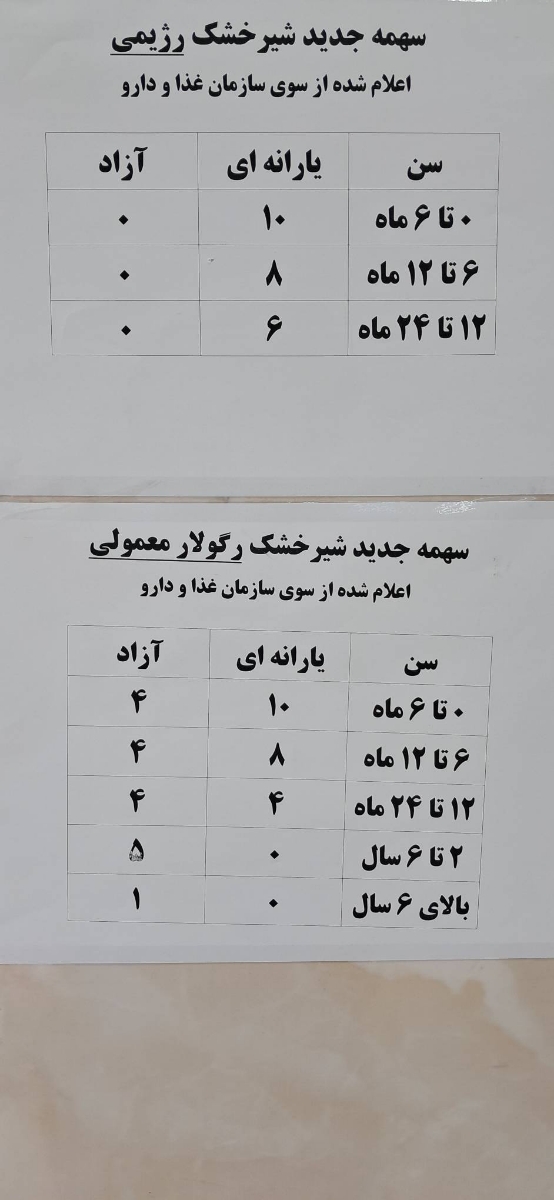 سهمه جدید شیرخشک رژیمی
اعلام شده از سوی سازمان غذا و دارو
سن یارانه ای آزاد
۰ تا ۶ ماه ۱۰ ۰
۶ تا ۱۲ ماه ۸ ۰
۱۲ تا ۲۴ ماه ۶ ۰
سهمه جدید شیرخشک رگولار معمولی
اعلام شده از سوی سازمان غذا و دارو
سن یارانه ای آزاد
۰ تا ۶ ماه ۱۰ ۴
۶ تا ۱۲ ماه ۸ ۴
۱۲ تا ۲۴ ماه ۴ ۴
۲ تا ۶ سال ۰ ۵
بالای ۶ سال ۰ ۱